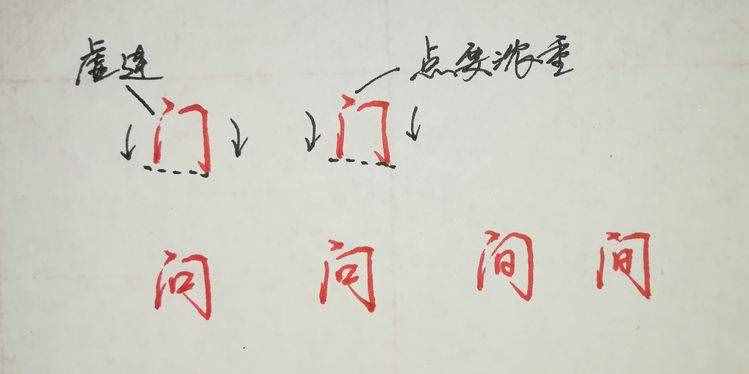 虚连 点要浓重
门 门
问 问 间 间